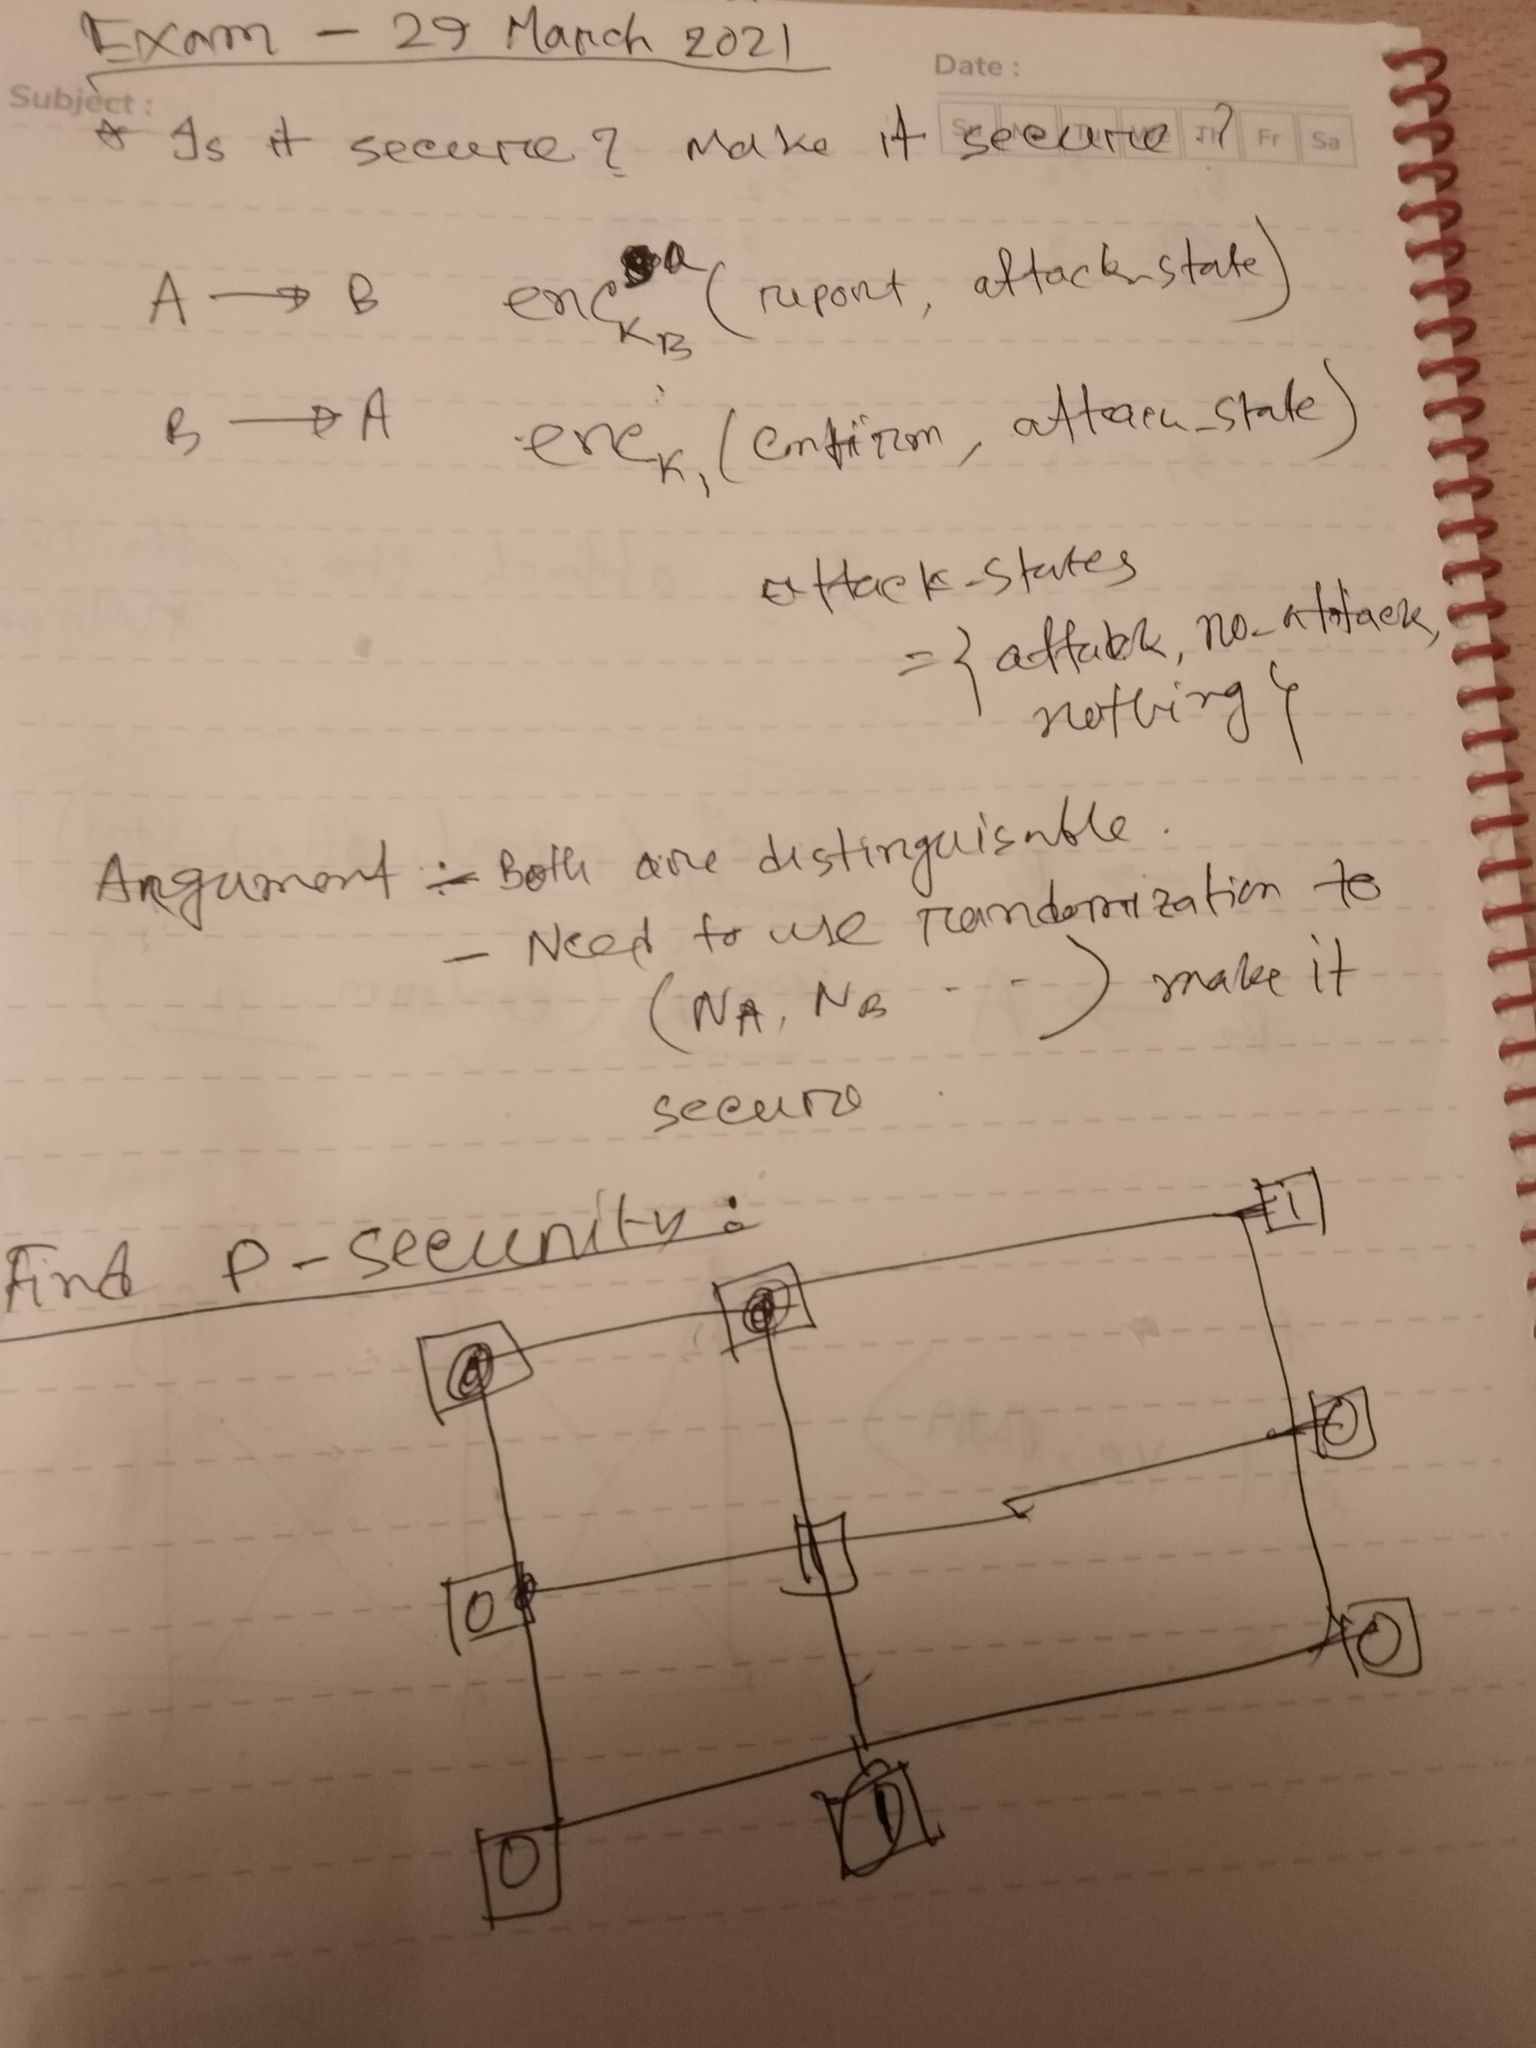 Exam - 29 March 2021
Date :
Subject :
* Is it secure? Make it secure?
Fr Sa
A → B enc^a_KB (report, attack_state)
B → A enc_K, (confirm, attack_state)
attack-states
= { attack, no-attack,
nothing }
Argument :- Both are distinguisable.
- Need to use randomization to
(NA, NB - -) make it
secure
Find P-security:
1
0
0
0
0